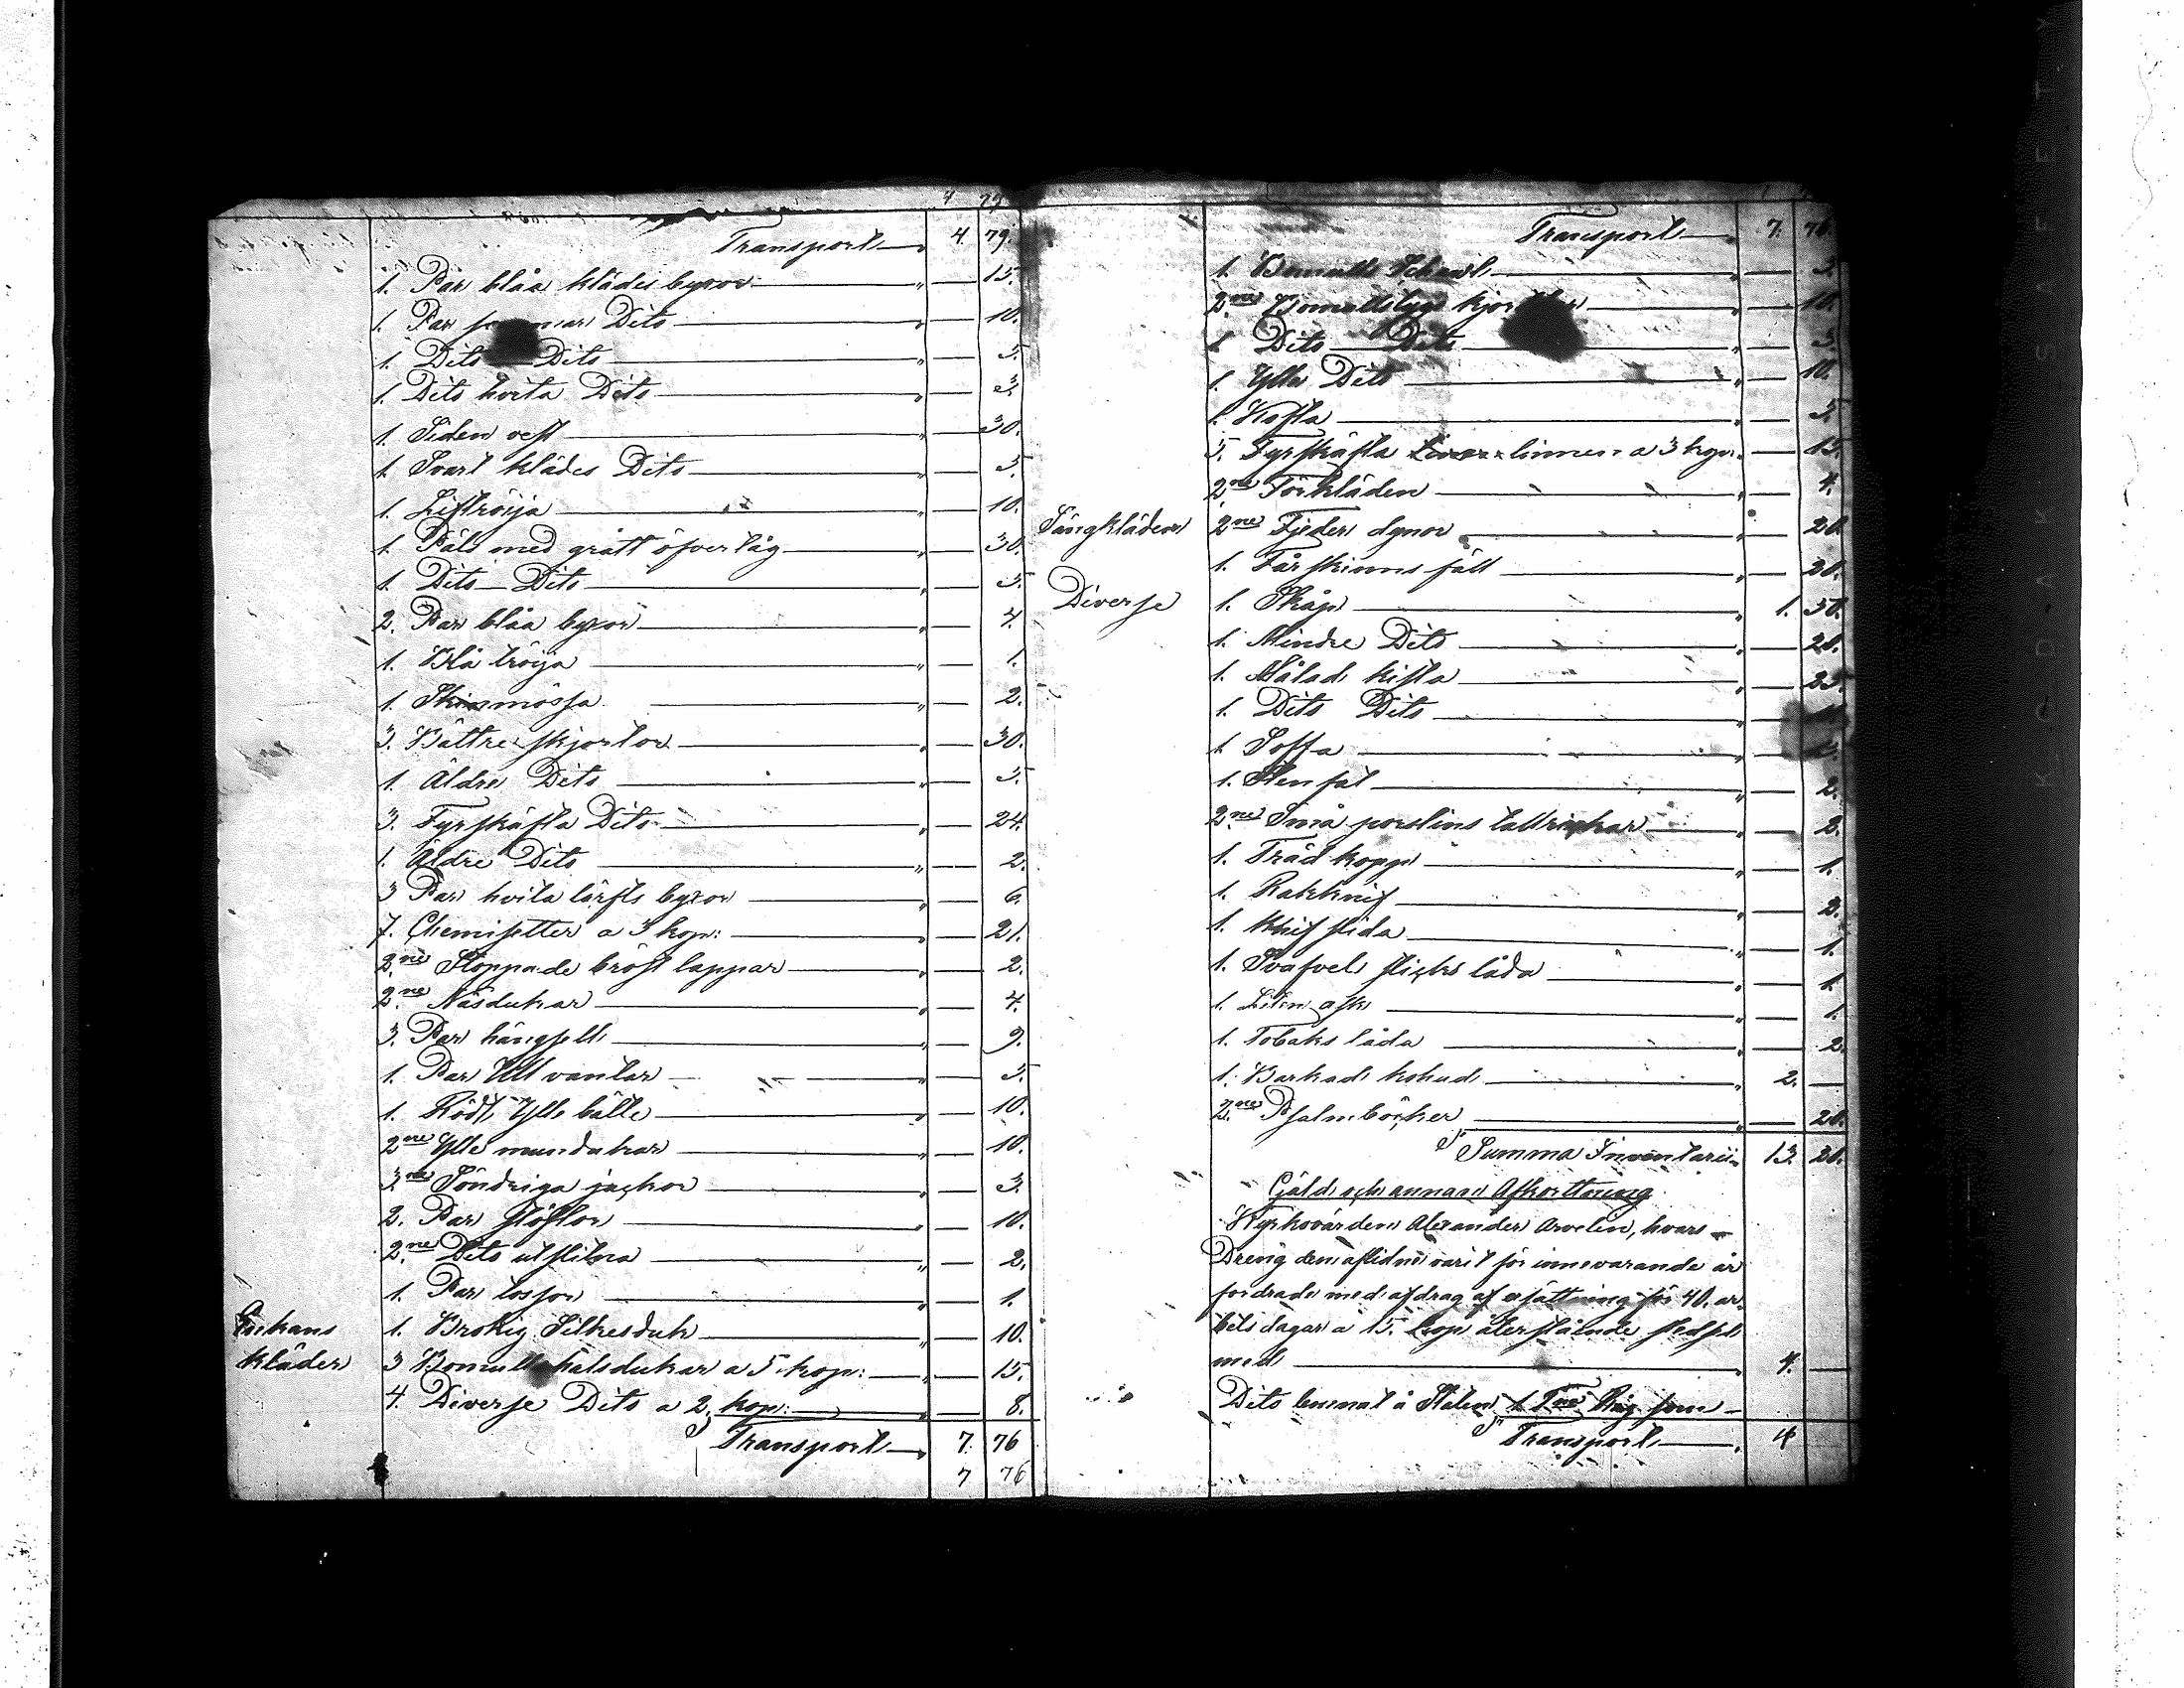 4 79
Transport — 4. 79.
1. Par blåa klädes byxor — " — 15.
1. Par sommar Dito — " — 10.
1. Dito Dito — " — 5.
1. Dito hvita Dito — " — 3.
1. Siden vest — " — 30.
1. Svart klädes Dito — " — 5.
1. Lifströija — " — 10.
1. Päls med grått öfvertåg — " — 30.
1. Dito Dito — " — 5.
2. Par blåa byxor — " — 4.
1. Blå tröija — " — 1.
1. Skinmössa — " — 2.
3. Bättre skjortor — " — 30.
1. Äldre Dito — " — 5.
3. Fyrskäfta Dito — " — 24.
1. Äldre Dito — " — 2.
3 Par hvita lärfts byxor — " — 6.
7. Chemisetter a 3 kop: — " — 21.
2ne Stoppade bröst lappar — " — 2.
2ne Näsdukar — " — 4.
3. Par hängsell — " — 9.
1. Par Ull vantar — " — 5.
1. Rödt Ylle bälte — " — 10.
2ne Ylle mundukar — " — 10.
3ne Söndriga jackor — " — 3.
2. Par stöflor — " — 10.
2ne Dito utslitna — " — 2.
1. Par tossor — " — 1.
Enkans 1. Brokig Silkesduk — " — 10.
kläder 3 Bomulls halsdukar a 5 kop: — " — 15.
4. Diverse Dito a 2. kop: — " — 8.
Transport — 7. 76
7 76
Transport — 7. 76.
1. Bomulls Schawl — " — 5.
2ne Bomullstygs kjortlar — " — 10.
1. Dito Dito — " — 5.
1. Ylle Dito — " — 10.
1. Kofta — " — 5.
5. Fyrskäfta linnen a 3 kop. — 15.
2ne Förkläden — " — 4.
Sängkläder 2ne Fjeder dynor — " — 20.
1. Fårskinns fäll — " — 20.
Diverse 1. Skåp — " 1. 50.
1. Mindre Dito — " — 20.
1. Målad kista — " — 25.
1. Dito Dito — "
1. Soffa — "
1. Stenfat — " — 2.
2ne Små porslins tallrickar — " — 2.
1. Träd kopp — " — 1.
1. Rakknif — " — 2.
1. Knif slida — " — 1.
1. Svafvel sticks låda — " — 1.
1. Liten ask — " — 1.
1. Tobaks låda — " — 2.
1. Barkad kohud — " 2. —
2ne Psalmböcker — " — 20.
Sr Summa Inventarii 13. 20.
Gäld och annan Afkorttning
Kyrkovärden Alexander Arvelin, hvars
Dreng den aflidne varit för innevarande år
fordrade med afdrag af ersättning för 40. ar-
bets dagar a 15. kop återstående
med — 4. —
Dito lemnat å 1 Tne Råg som
Transport — 4